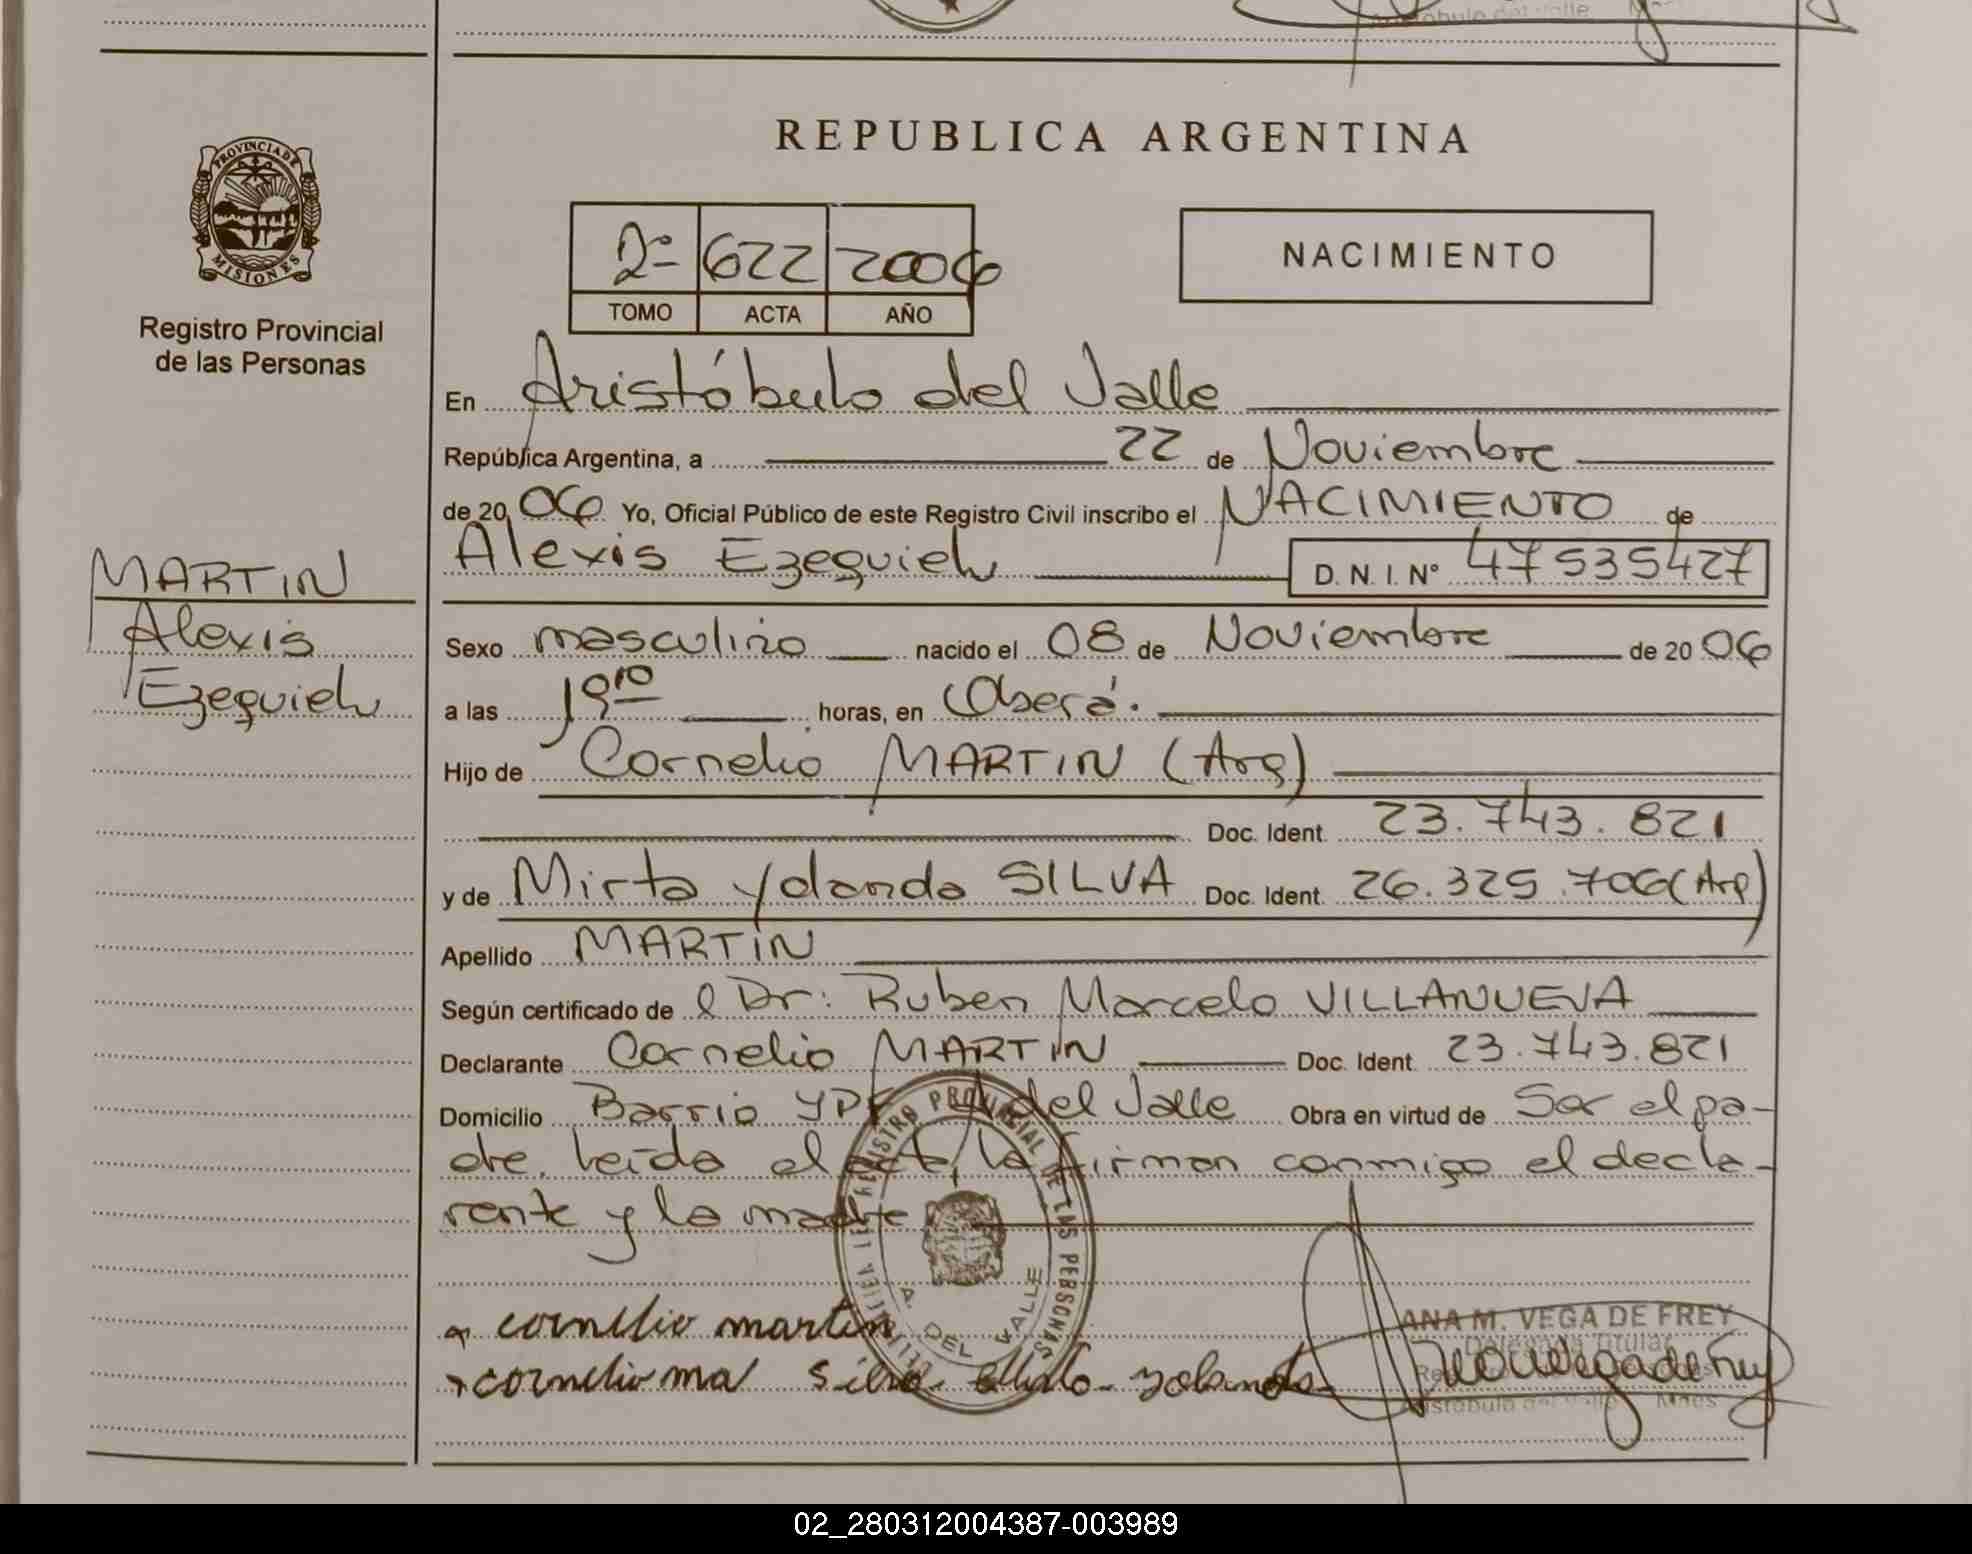 REPUBLICA ARGENTINA
PROVINCIA DE
MISIONES
Registro Provincial
de las Personas
2º 622 2006
TOMO ACTA AÑO
NACIMIENTO
En Aristóbulo del Valle
República Argentina, a 22 de Noviembre
de 2006 Yo, Oficial Público de este Registro Civil inscribo el NACIMIENTO de
Alexis Ezequiel D. N. I. Nº 47535427
MARTIN
Alexis
Ezequiel
Sexo masculino nacido el 08 de Noviembre de 2006
a las 19:10 horas, en Oberá.
Hijo de Cornelio MARTIN (Arg)
Doc. Ident. 23.743.821
y de Mirta Yolanda SILVA Doc. Ident. 26.325.706 (Arg)
Apellido MARTIN
Según certificado de el Dr: Ruben Marcelo VILLANUEVA
Declarante Cornelio MARTIN Doc. Ident. 23.743.821
Domicilio Barrio YPF A del Valle Obra en virtud de Ser el pa-
dre. Leida el acta, la firman conmigo el decla-
rante y la madre
REGISTRO PROVINCIAL DE LAS PERSONAS
A. DEL VALLE
cornelio martin
cornelio ma silva yolanda
ANA M. VEGA DE FREY
Delegada Titular
Aristóbulo del Valle Mnes
02_280312004387-003989